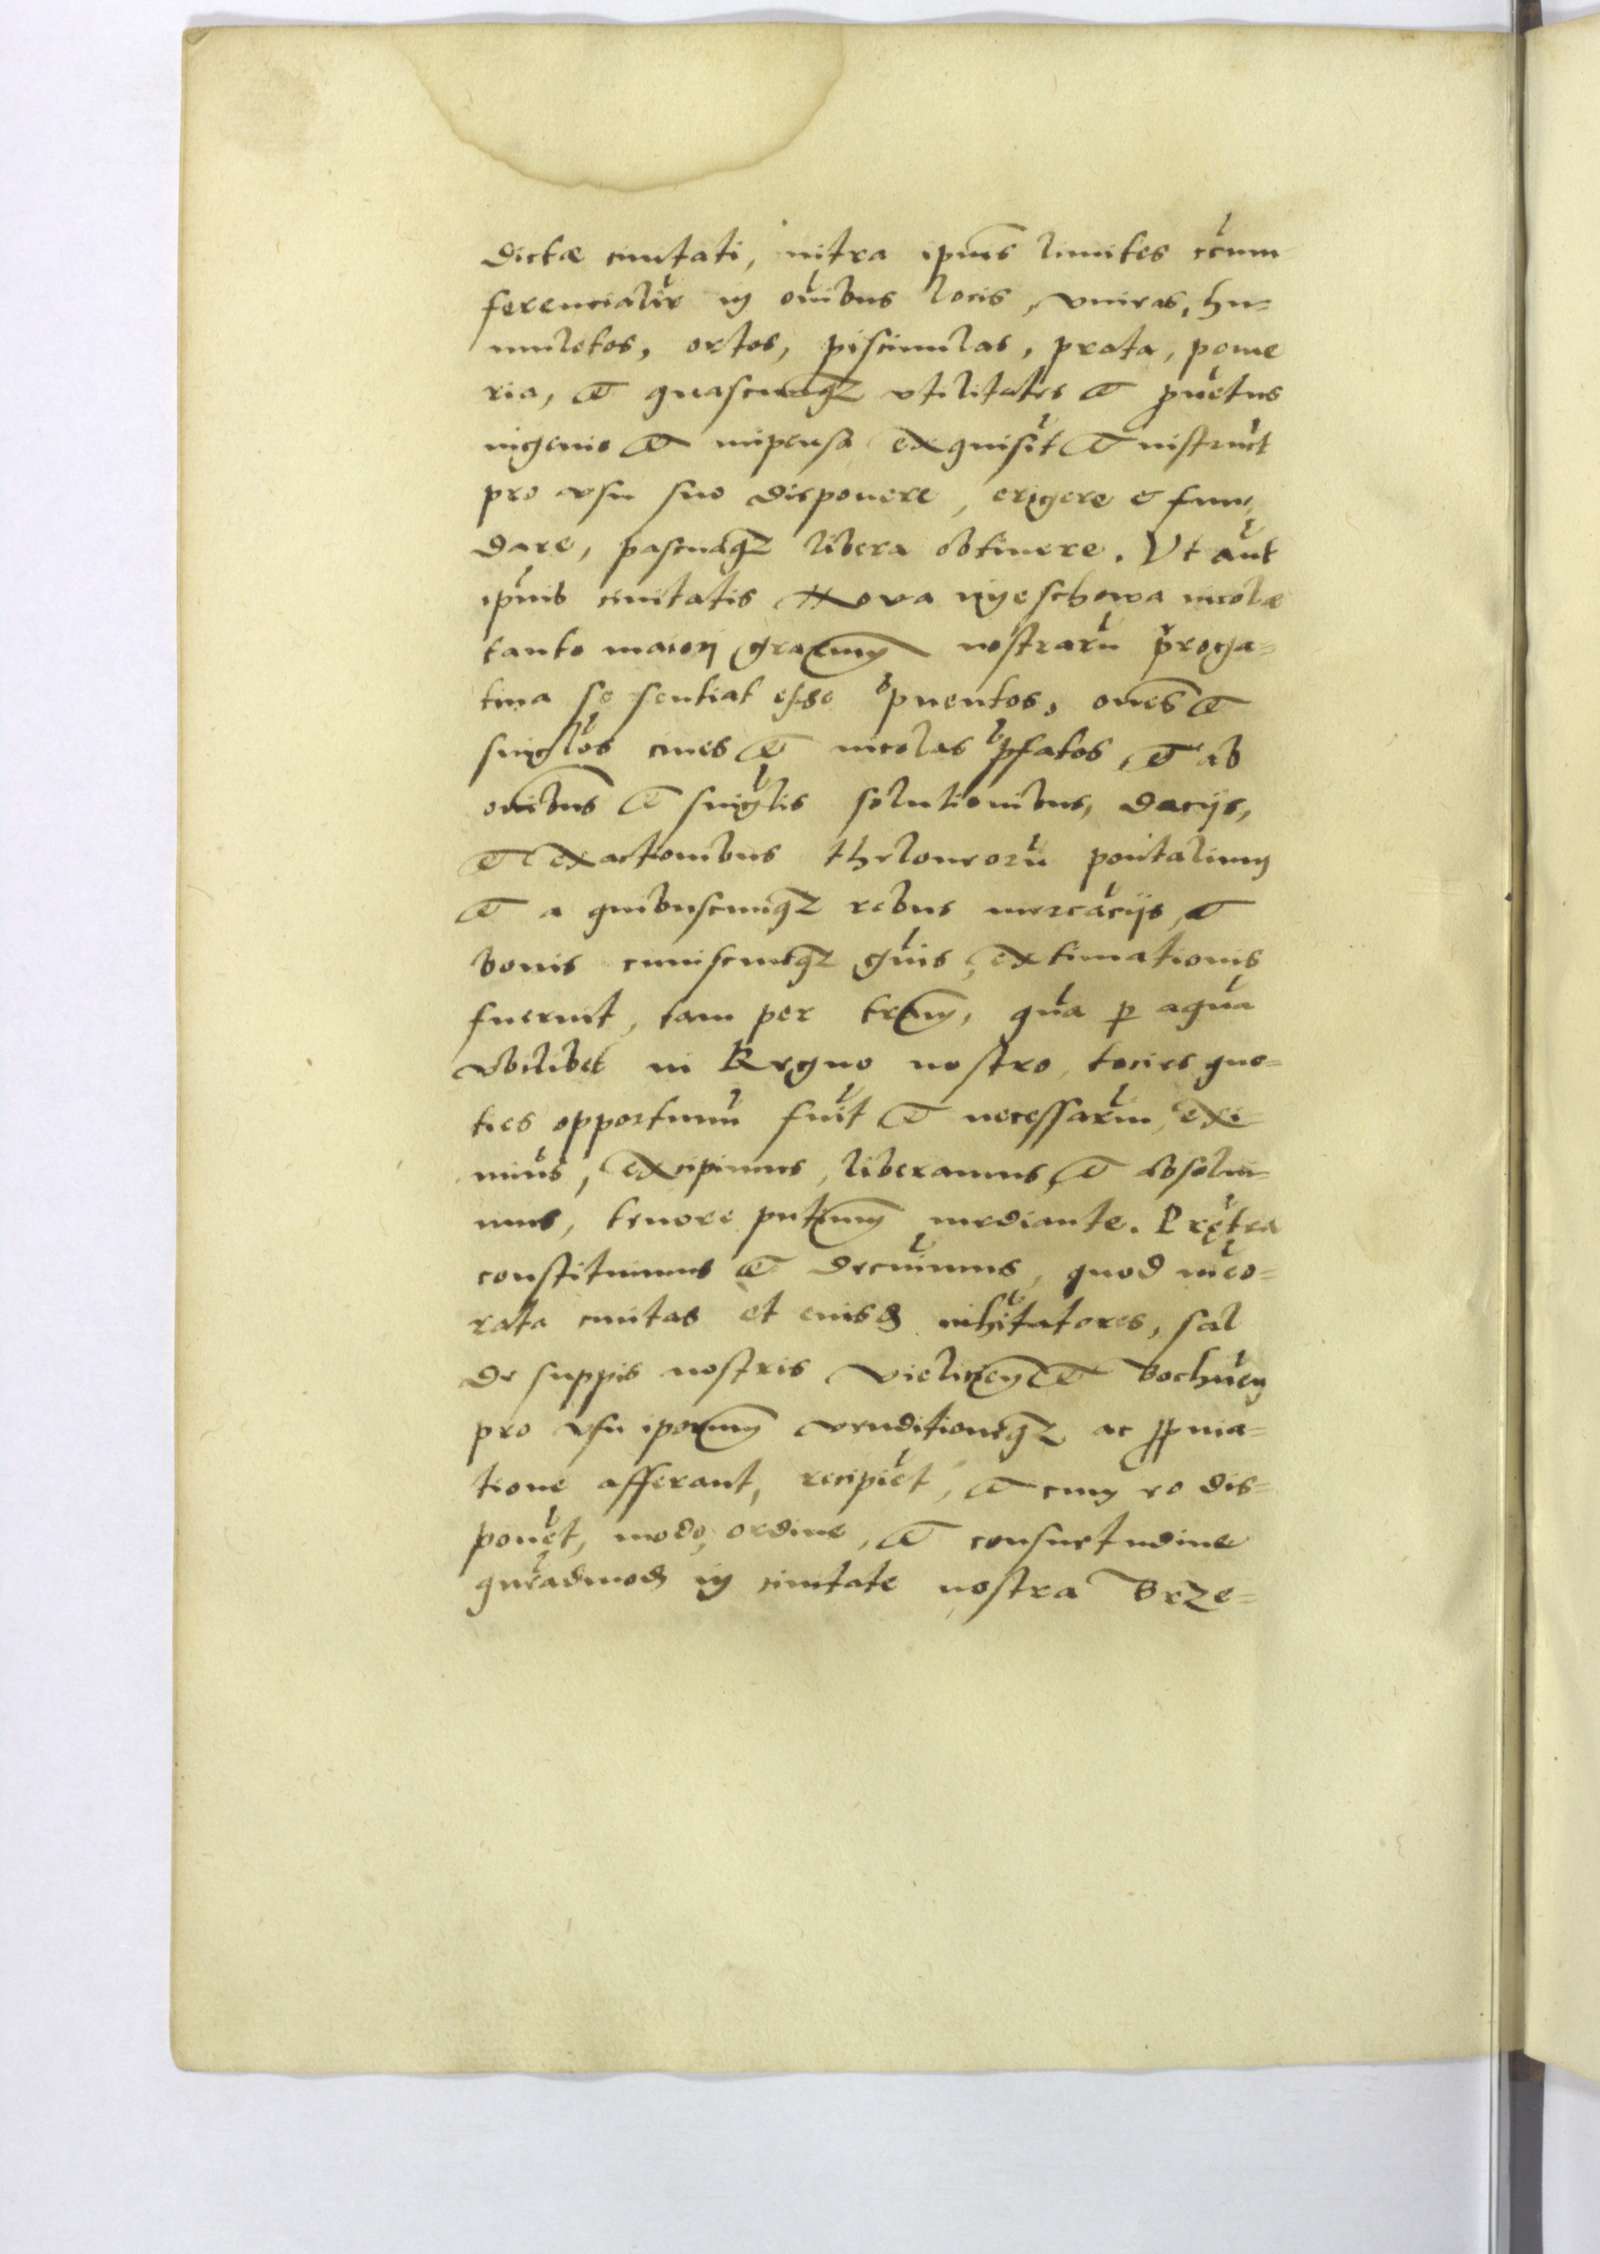 dictæ ciuitati, intra ip̄ius limites c̓cum
ferencialit̓ in om̄ibus locis, vineas, hu-
muletos, ortos, piscinulas, prata, pome
ria, et quascunq3 vtilitates et prouetus
ingenio et impensa exquisit̓ et instruct̓
pro vsu suo disponere, erigere et fun,
dare, pascuaq3 libera obtinere. Vt aut̓
ip̄ius ciuitatis Noua nyeschowa incolæ
tanto maiori gratiarum nostraru̓ p̓roga-
tiua se sentiat esse p̓uentos, om̄es et
singl̓os ciues et incolas p̓fatos, et ab
om̄ibus et singl̓is solutionibus, dacijs,
et exactionibus theloneoru̓ pontalium
et a quibuscunq3 rebus mercac̓ijs, et
bonis cuiuscunq3 gn̓is, extimationis
fuerint, tam per terram, qua̓ p aqua̓
vbilibet in Regno nostro, tocies quo-
ties opportunu̓ fu̓it et necessariu̓, exi-
mim̓us, excipimus, liberamus, et absolui-
mus, tenore p̄ntium mediante. Prętrea
constituimus et decernimus, quod meo̓-
rata ciuitas et eiusd inh̓itatores, sal
de suppis nostris vielicien et Bochnen
pro vsu ip̄orum venditioneq3 ac ppina-
tione afferant, recipiet̓, et cum eo dis-
ponet̓, modo, ordine, et consuetudine
que̓admod in ciuitate nostra Brze-